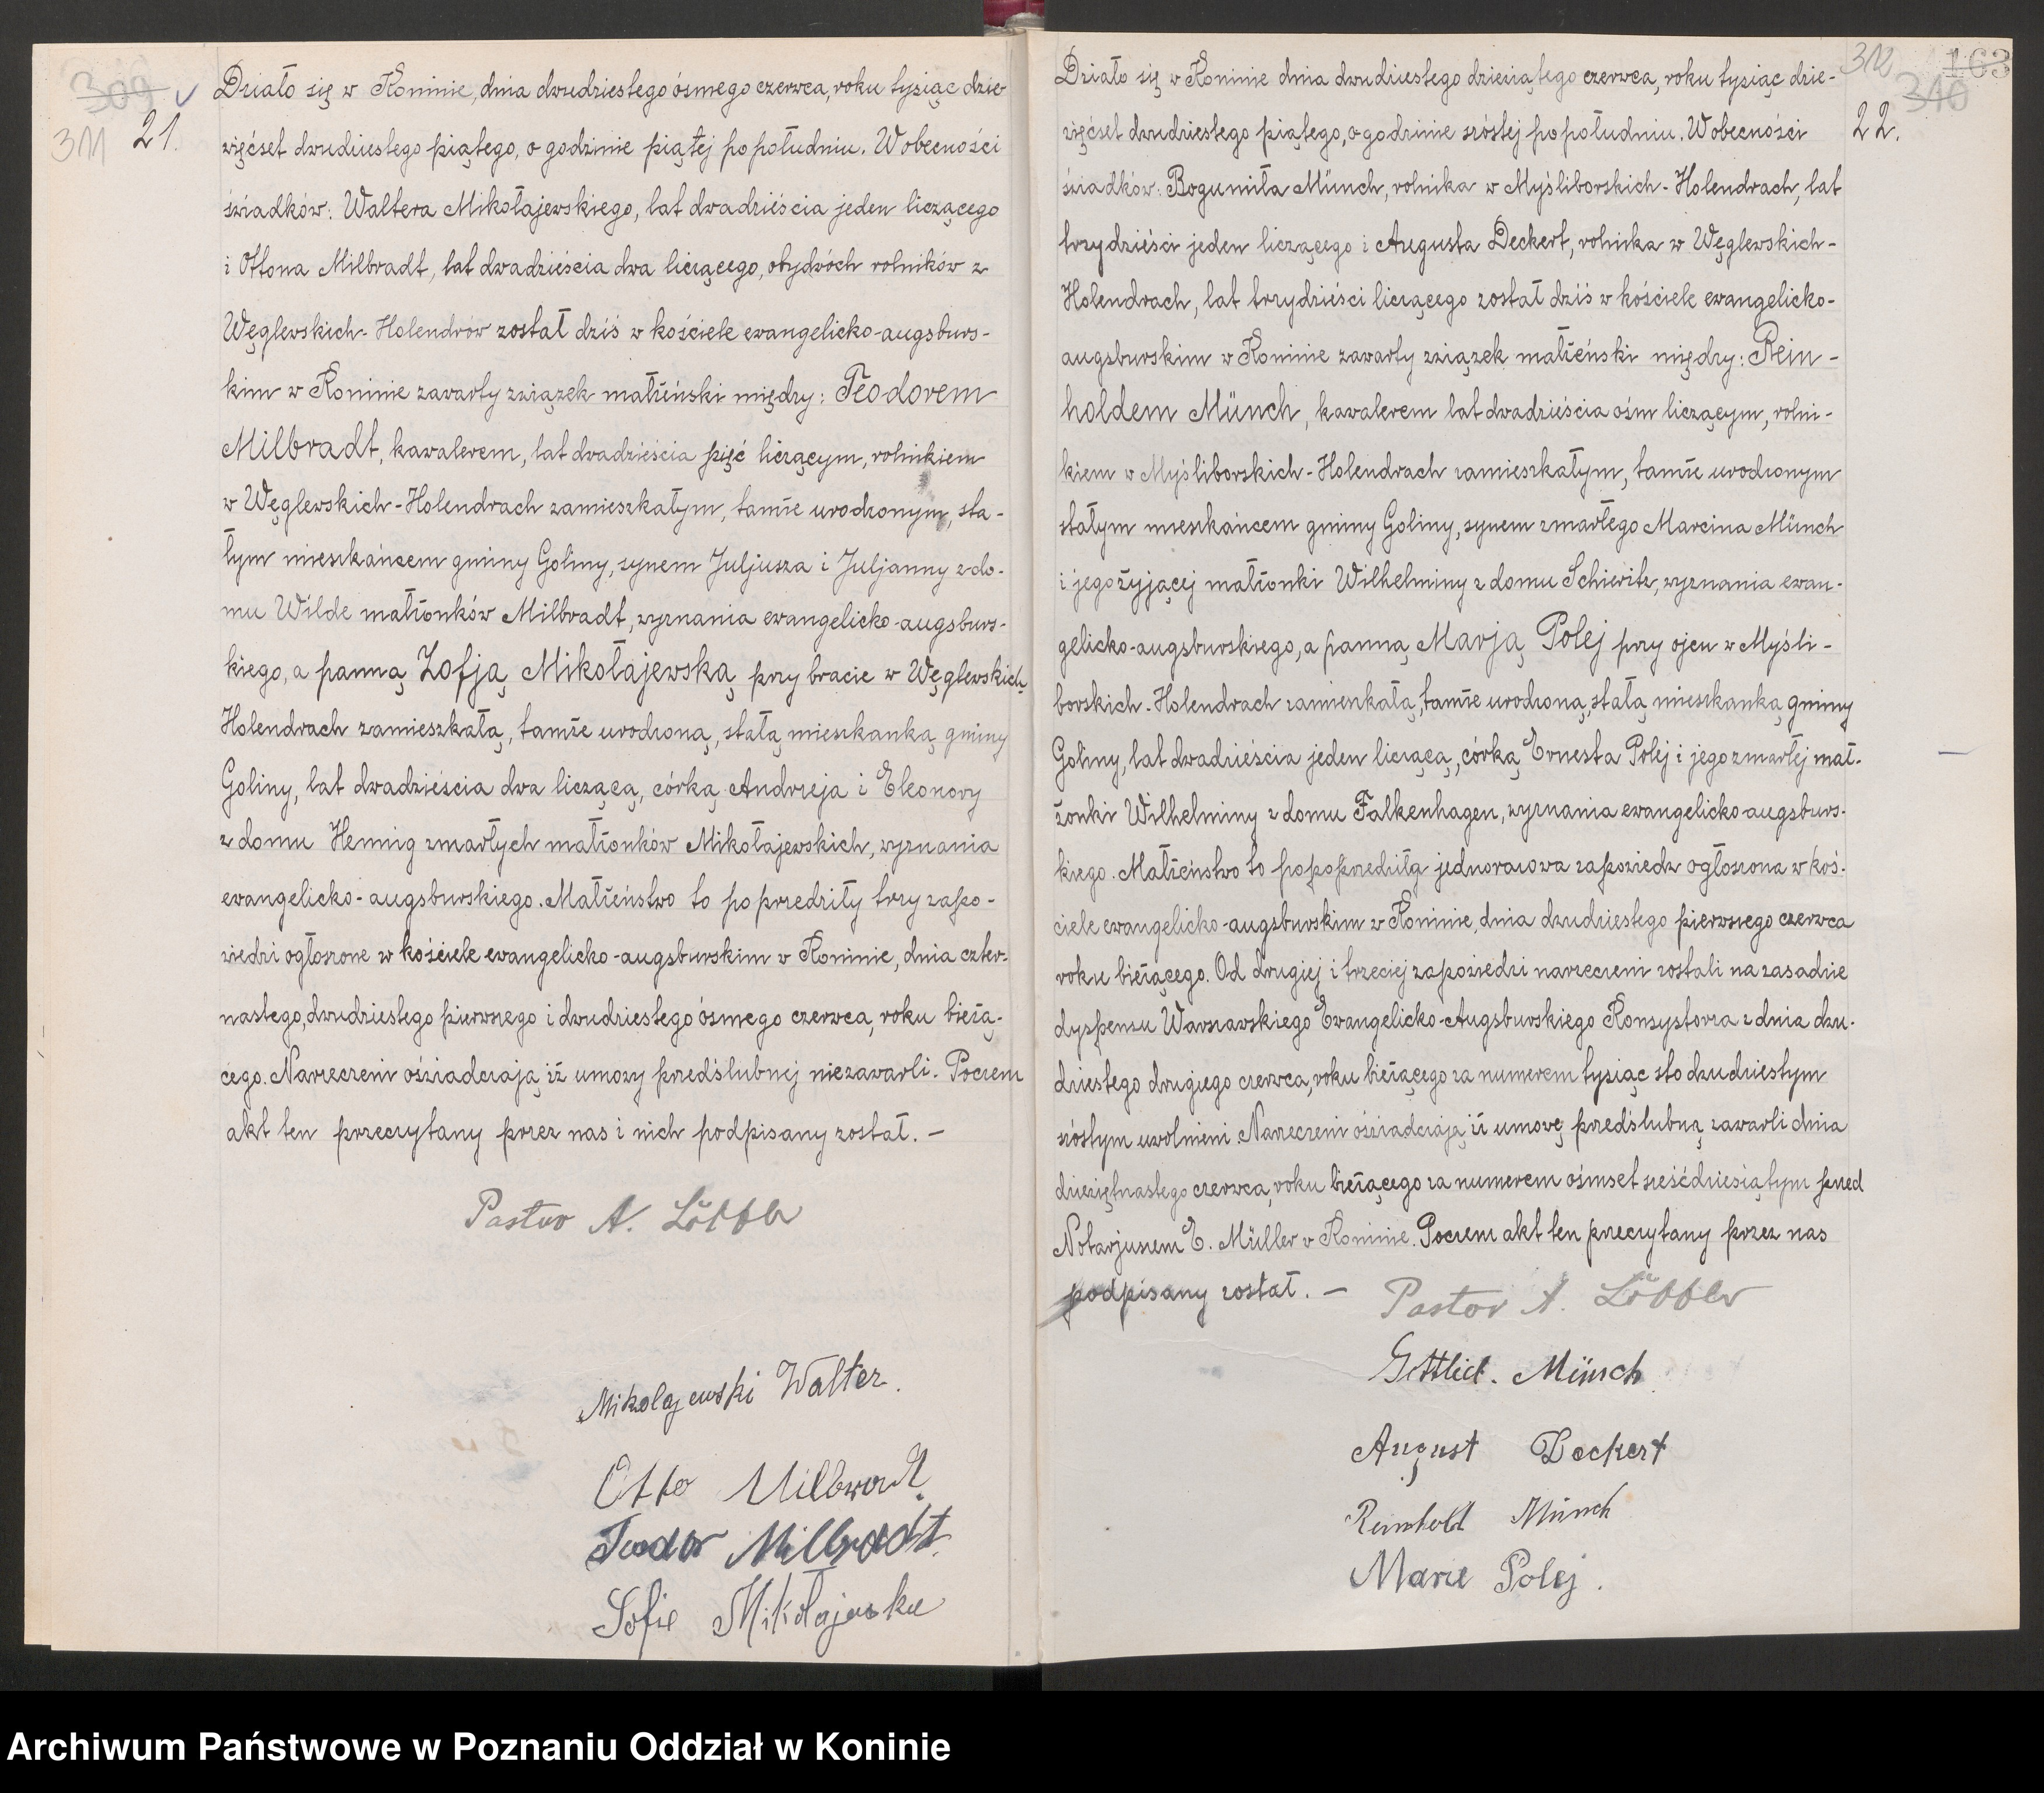 309
311
21.
Działo się w Koninie, dnia dwudziestego ósmego czerwca, roku tysiąc dzie-
więćset dwudziestego piątego, o godzinie piątej popołudniu. W obecności
świadków: Waltera Mikołajewskiego, lat dwadzieścia jeden liczącego
i Ottona Milbradt, lat dwadzieścia dwa liczącego, obydwóch rolników z
Węglewskich-Holendrów został dziś w kościele ewangelicko-augsburs-
kim w Koninie zawarty związek małżeński między: Teodorem
Milbradt, kawalerem, lat dwadzieścia pięć liczącym, rolnikiem
w Węglewskich-Holendrach zamieszkałym, tamże urodzonym, sta-
łym mieszkańcem gminy Goliny, synem Juljusza i Juljanny z do-
mu Wilde małżonków Milbradt, wyznania ewangelicko-augsburs-
kiego, a panną Zofją Mikołajewską przy bracie w Węglewskich
Holendrach zamieszkałą, tamże urodzoną, stałą mieszkanką gminy
Goliny, lat dwadzieścia dwa liczącą, córką Andrzeja i Eleonory
z domu Hennig zmarłych małżonków Mikołajewskich, wyznania
ewangelicko-augsburskiego. Małżeństwo to poprzedziły trzy zapo-
wiedzi ogłoszone w kościele ewangelicko-augsburskim w Koninie, dnia czter-
nastego, dwudziestego pierwszego i dwudziestego ósmego czerwca, roku bieżą-
cego. Narzeczeni oświadczają iż umowy przedślubnej niezawarli. Poczem
akt ten przeczytany przez nas i nich podpisany został. —
Pastor A. Löffler
Mikolajewski Walter.
Otto Milbradt
Teodor Milbradt.
Sofie Mikołajewska
312
163
310
22.
Działo się w Koninie dnia dwudziestego dziewiątego czerwca, roku tysiąc dzie-
więćset dwudziestego piątego, o godzinie szóstej popołudniu. W obecności
świadków: Bogumiła Münch, rolnika w Myśliborskich-Holendrach, lat
trzydzieści jeden liczącego i Augusta Deckert, rolnika w Węglewskich-
Holendrach, lat trzydzieści liczącego został dziś w kościele ewangelicko-
augsburskim w Koninie zawarty związek małżeński między: Rein-
holdem Münch, kawalerem lat dwadzieścia ośm liczącym, rolni-
kiem w Myśliborskich-Holendrach zamieszkałym, tamże urodzonym
stałym mieszkańcem gminy Goliny, synem zmarłego Marcina Münch
i jego żyjącej małżonki Wilhelminy z domu Schiewitz, wyznania ewan-
gelicko-augsburskiego, a panną Marją Polej przy ojcu w Myśli-
borskich-Holendrach zamieszkałą, tamże urodzoną, stałą mieszkanką gminy
Goliny, lat dwadzieścia jeden liczącą, córką Ernesta Polej i jego zmarłej mał-
żonki Wilhelminy z domu Falkenhagen, wyznania ewangelicko-augsburs-
kiego. Małżeństwo to popoprzedziła jednorazowa zapowiedź ogłoszona w koś-
ciele ewangelicko-augsburskim w Koninie, dnia dwudziestego pierwszego czerwca
roku bieżącego. Od drugiej i trzeciej zapowiedzi narzeczeni zostali na zasadzie
dyspensu Warszawskiego Ewangelicko-Augsburskiego Konsystorza z dnia dwu-
dziestego drugiego czerwca, roku bieżącego za numerem tysiąc sto dwudziestym
szóstym uwolnieni. Narzeczeni oświadczają iż umowę przedślubną zawarli dnia
dziewiętnastego czerwca, roku bieżącego za numerem ośmset sześćdziesiątym przed
Notarjuszem E. Müller w Koninie. Poczem akt ten przeczytany przez nas
podpisany został. — Pastor A. Löffler
Gottlieb. Münch
August Deckert
Reinhold Münch
Marie Polej.
Archiwum Państwowe w Poznaniu Oddział w Koninie